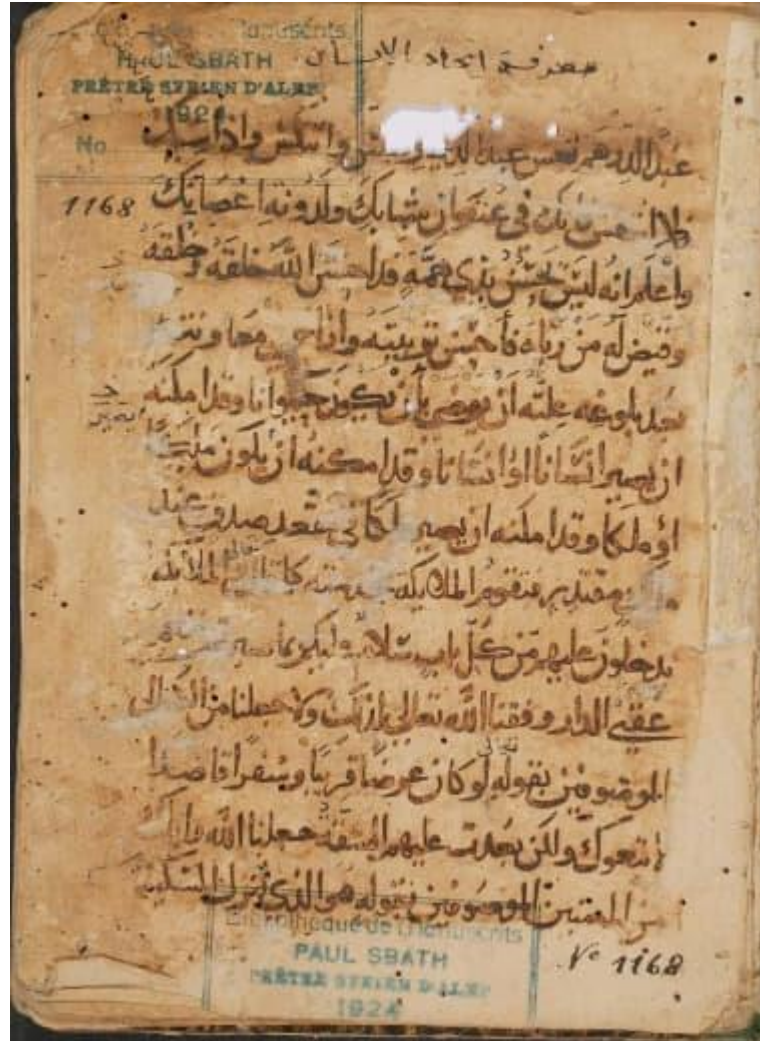 Bibliothèque de Manuscrits
PAUL SBATH
PRÊTRE SYRIEN D'ALEP
1924
No
1168
معرفة اتحاد الانسان
عبد الدرهم تعس عبد وانتكس واذا شيك
فلا انتعش في عنفوان شبابك ولدونة اغصانك
واعلم انه ليس يحسن بذي همة قد احسن الله خلقه وخلقه
وقيض له من رباه فأحسن تربيته وازاحـ معاونته
بعد بلوغه علته أن يرضى بأن يكون حيوانا وقد امكنه
ان يصير انسانا او انسانا وقد امكنه أن يكون ملكا
أو ملكا وقد امكنه ان يصير في مقعد صدق عند
مليك مقتدر فتقوم الملايكة بخدمته كما قال تعالى الملائكة
يدخلون عليهم من كل باب سلام عليكم بما صبرتم فنعم
عقبى الدار وفقنا الله تعالى لذلك ولا جعلنا من
الموصوفين بقوله تعالى لو كان عرضا قريبا وسفرا قاصدا
لاتبعوك ولكن بعدت عليهم الشقة جعلنا الله واياك
من الموصوفين بقوله هو الذي أنزل السكينة
Bibliothèque de Manuscrits
PAUL SBATH
PRÊTRE SYRIEN D'ALEP
1924
No 1168